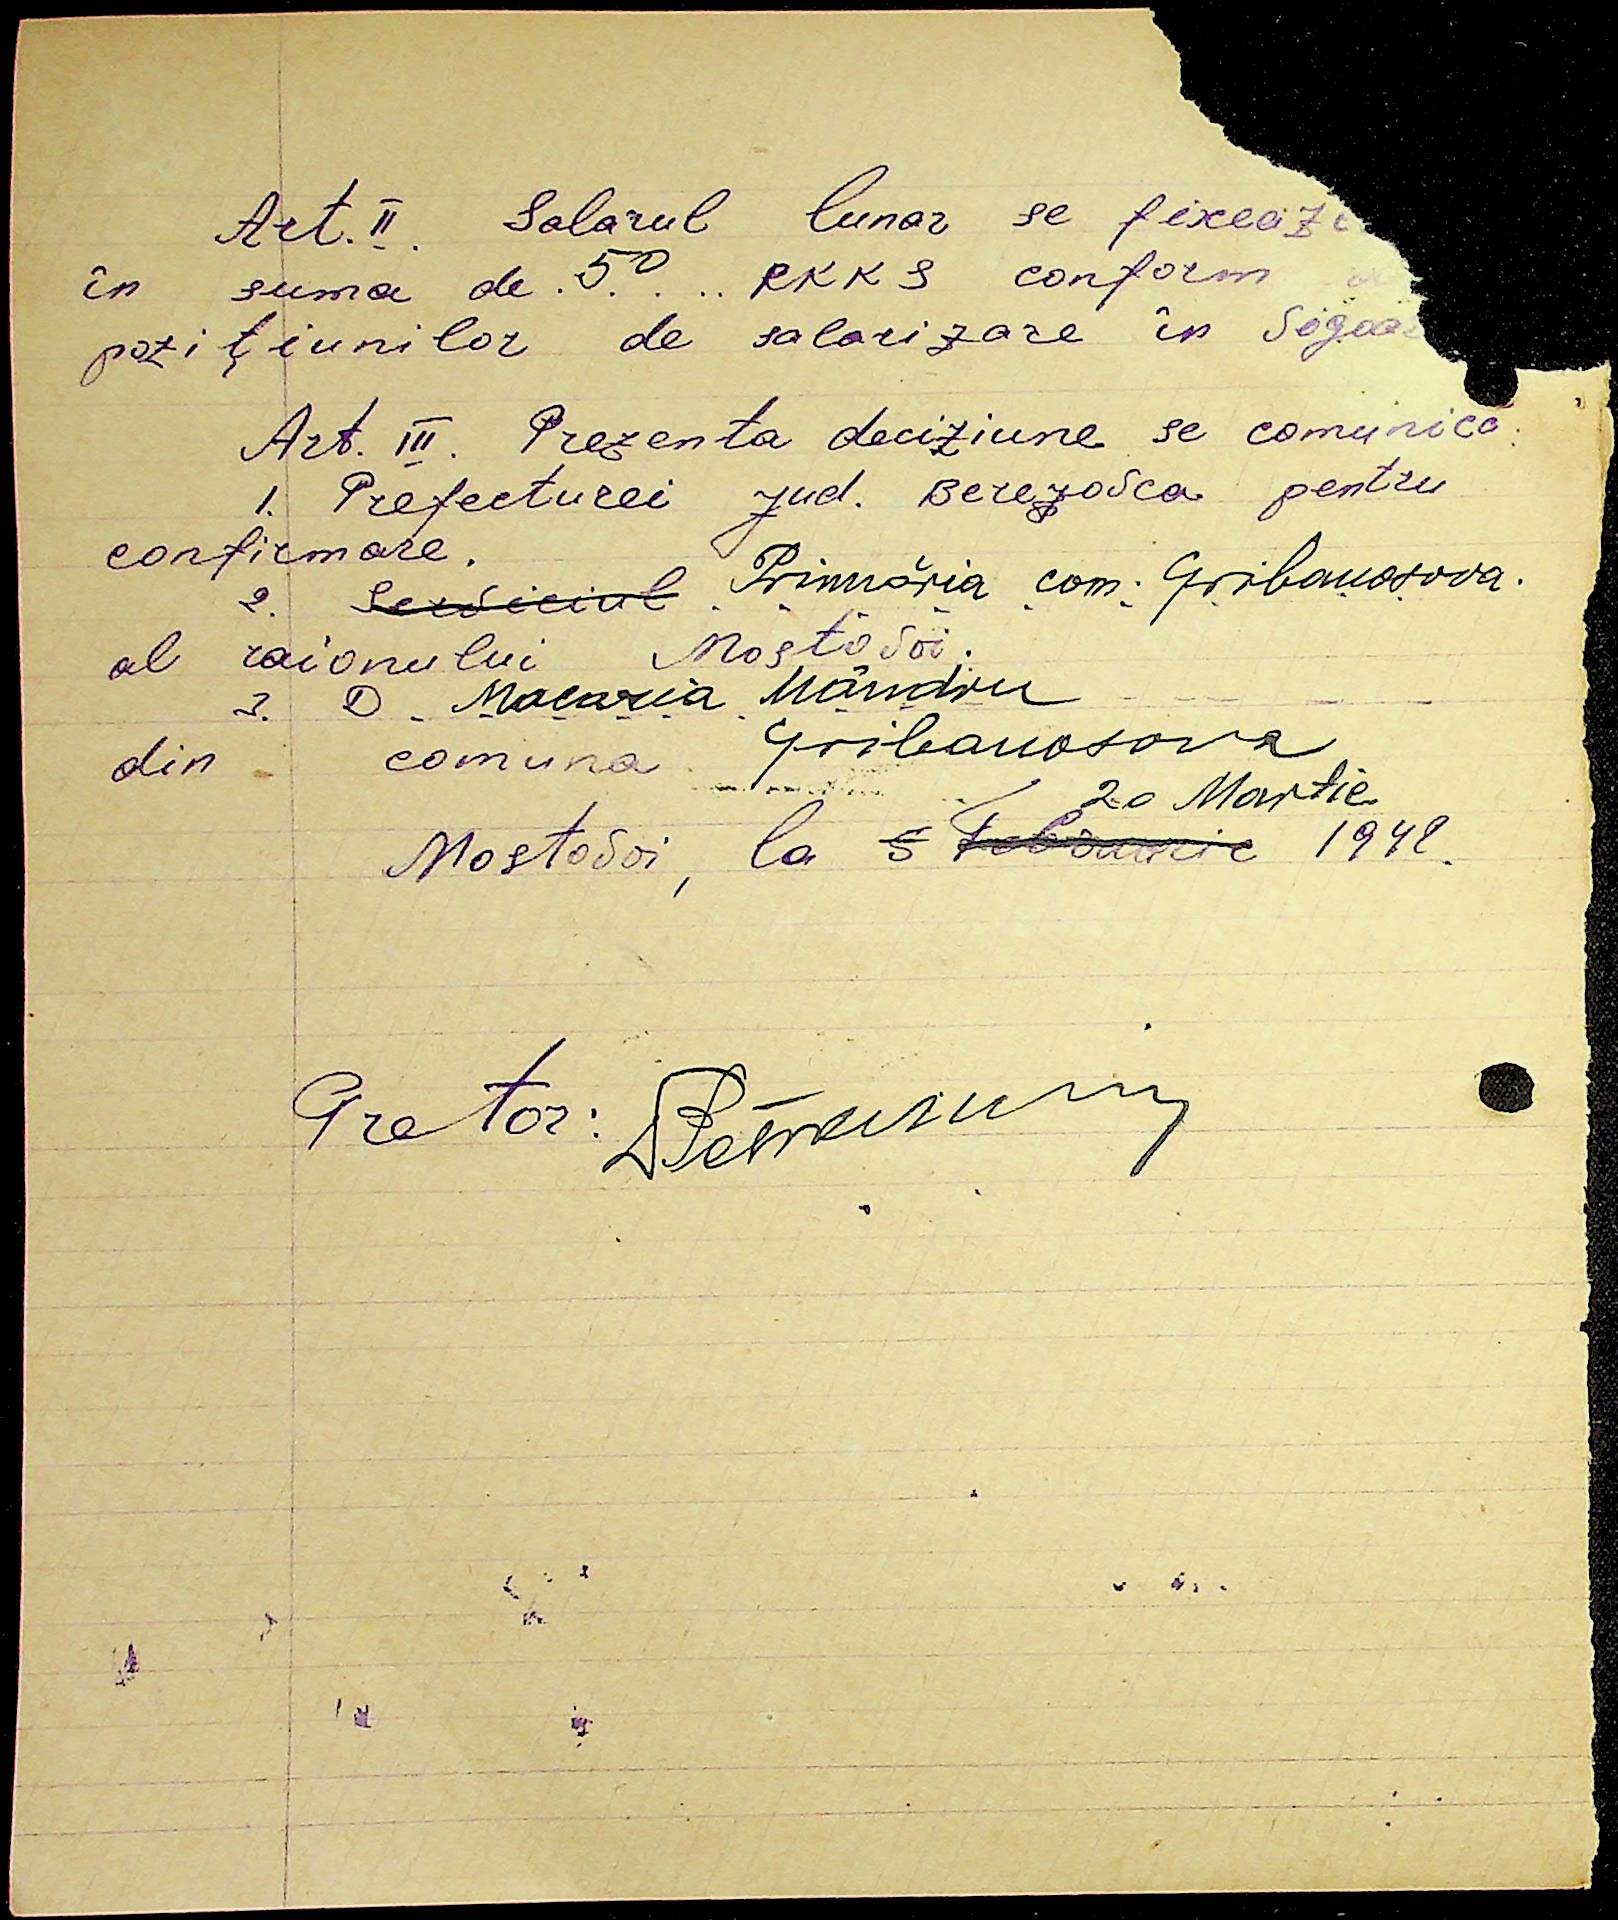 Art. II. Salarul lunar se fixeaz
în suma de . 50 . . .. RKKS conform
pozițiunilor de salarizare în
Art. III. Prezenta deciziune se comunică:
1. Prefecturei jud. Berezovca pentru
confirmare.
2. Serviciul Primăria com. Gribanosova.
al raionului Mostovoi.
3. D. Macaria Mândru
din comuna Gribanosova
20 Martie
Mostovoi, la 5 Februarie 1942.
Pretor: